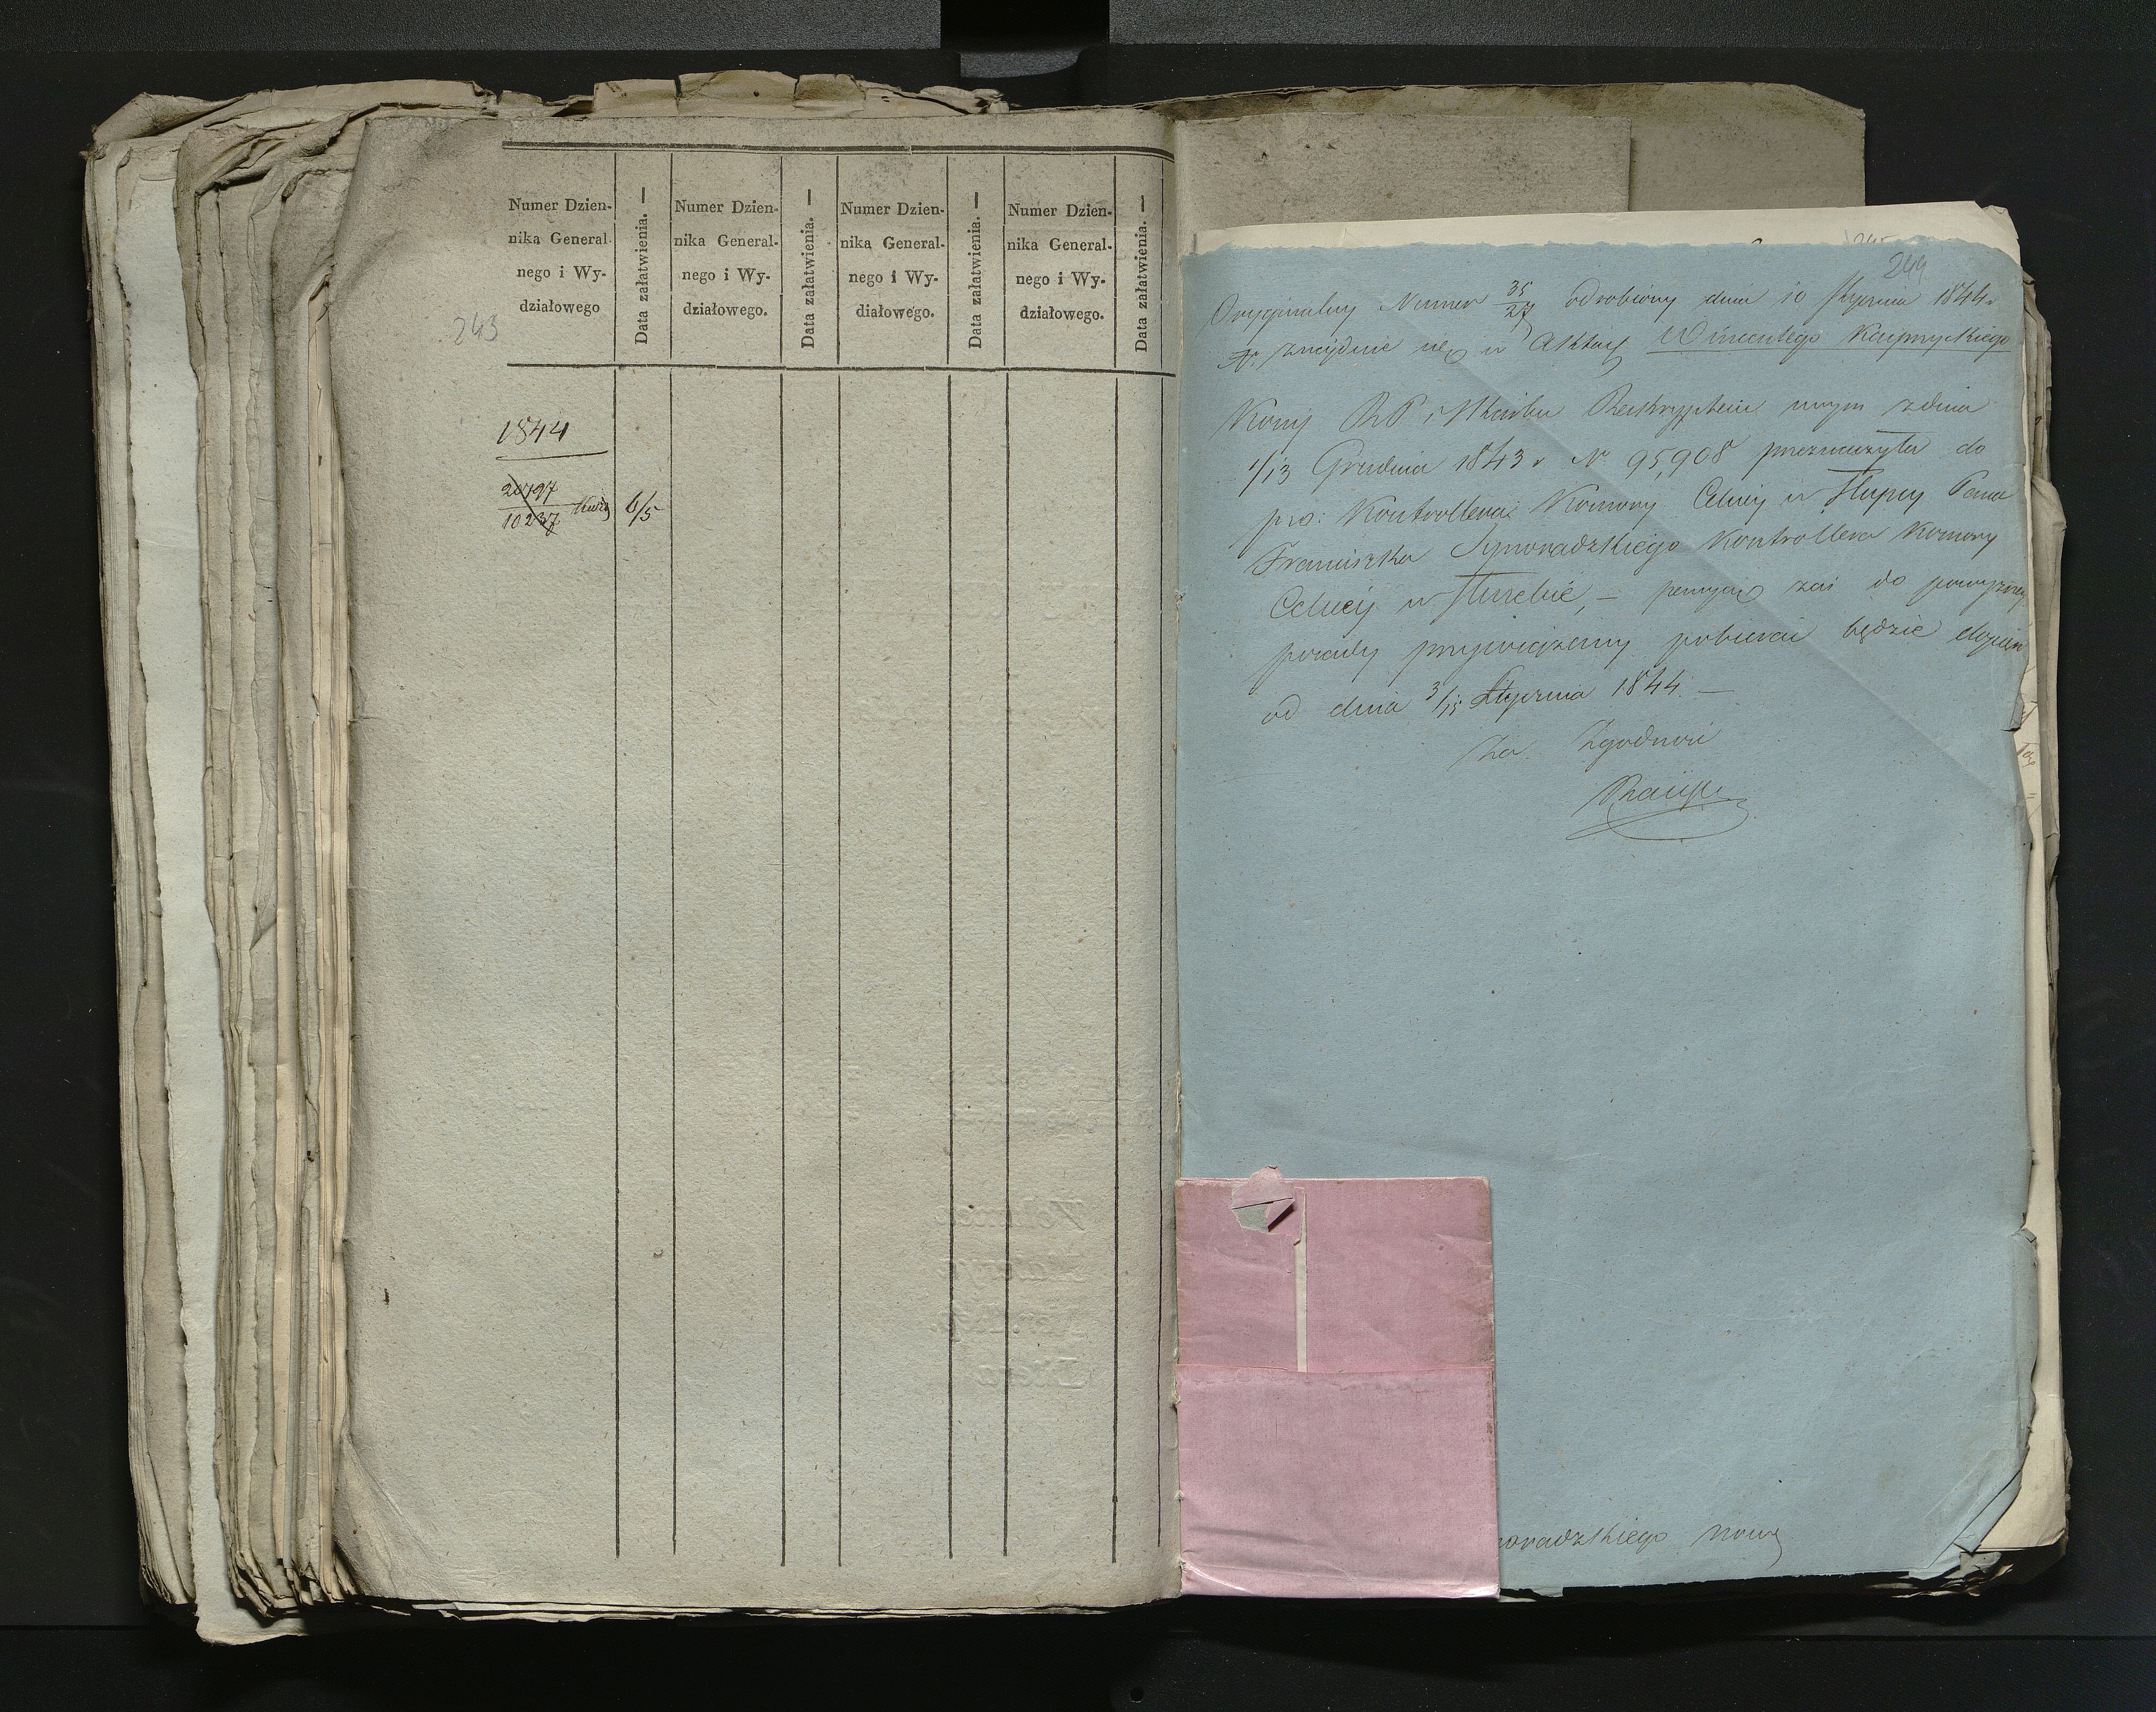 243
Numer Dzien-
nika General-
nego i Wy-
działowego
Data załatwienia. —
Numer Dzien-
nika General-
nego i Wy-
działowego.
Data załatwienia. —
Numer Dzien-
nika General-
nego i Wy-
działowego.
Data załatwienia. —
Numer Dzien-
nika General-
nego i Wy-
działowego.
Data załatwienia. —
1844
20797
10237
6/5
244
Oryginalny Numer 35/27 odrobiony dnia 10 Stycznia 1844 r.
znajduie się w Aktach Wincentego
RP i Skarbu Reskryptem swym z dnia
1/13 Grudnia 1843 r N 95,908 przeznaczyła do
Kontrollera Komory Celnej w Słupcy Pana
Franciszka Kontrollera Komory
Celnej w — pensyią zaś do powyższey
posady przywiązaną pobierać będzie
od dnia 3/15 Stycznia 1844. —
Za Zgodność
oradzkiego